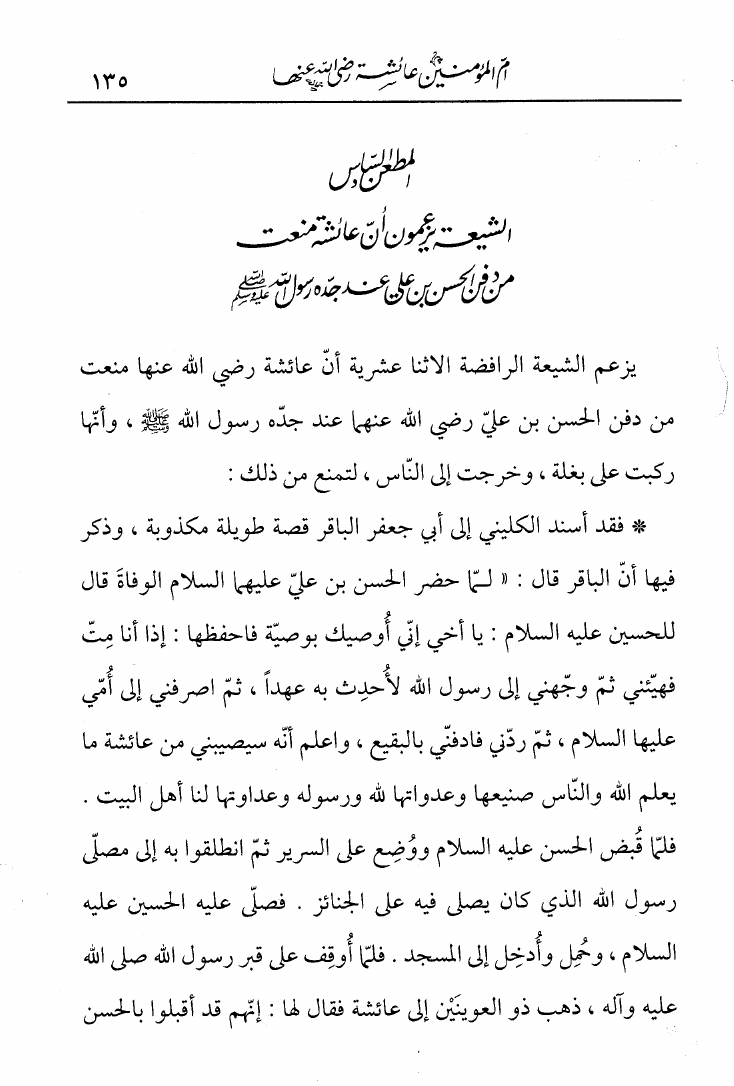 أمّ المؤمنين عائشة رضي الله عنها ١٣٥
المطعن السّادس
الشيعة يزعمون أنّ عائشة منعت
من دفن الحسن بن علي عند جدّه رسول الله ﷺ
يزعم الشيعة الرافضة الاثنا عشرية أنّ عائشة رضي الله عنها منعت
من دفن الحسن بن عليّ رضي الله عنهما عند جدّه رسول الله ﷺ ، وأنّها
ركبت على بغلة ، وخرجت إلى النّاس ، لتمنع من ذلك :
* فقد أسند الكليني إلى أبي جعفر الباقر قصة طويلة مكذوبة ، وذكر
فيها أنّ الباقر قال : « لـمّا حضر الحسن بن عليّ عليهما السلام الوفاةَ قال
للحسين عليه السلام : يا أخي إنّي أُوصيك بوصيّة فاحفظها : إذا أنا مِتّ
فهيّئني ثمّ وجّهني إلى رسول الله لأُحدِث به عهداً ، ثمّ اصرفني إلى أُمّي
عليها السلام ، ثمّ ردّني فادفنّي بالبقيع ، واعلم أنّه سيصيبني من عائشة ما
يعلم الله والنّاس صنيعها وعدواتها لله ورسوله وعداوتها لنا أهل البيت .
فلمّا قُبض الحسن عليه السلام ووُضِع على السرير ثمّ انطلقوا به إلى مصلّى
رسول الله الذي كان يصلي فيه على الجنائز . فصلّى عليه الحسين عليه
السلام ، وحُمِل وأُدخِل إلى المسجد . فلمّا أُوقِف على قبر رسول الله صلى الله
عليه وآله ، ذهب ذو العوينَيْن إلى عائشة فقال لها : إنّهم قد أقبلوا بالحسن